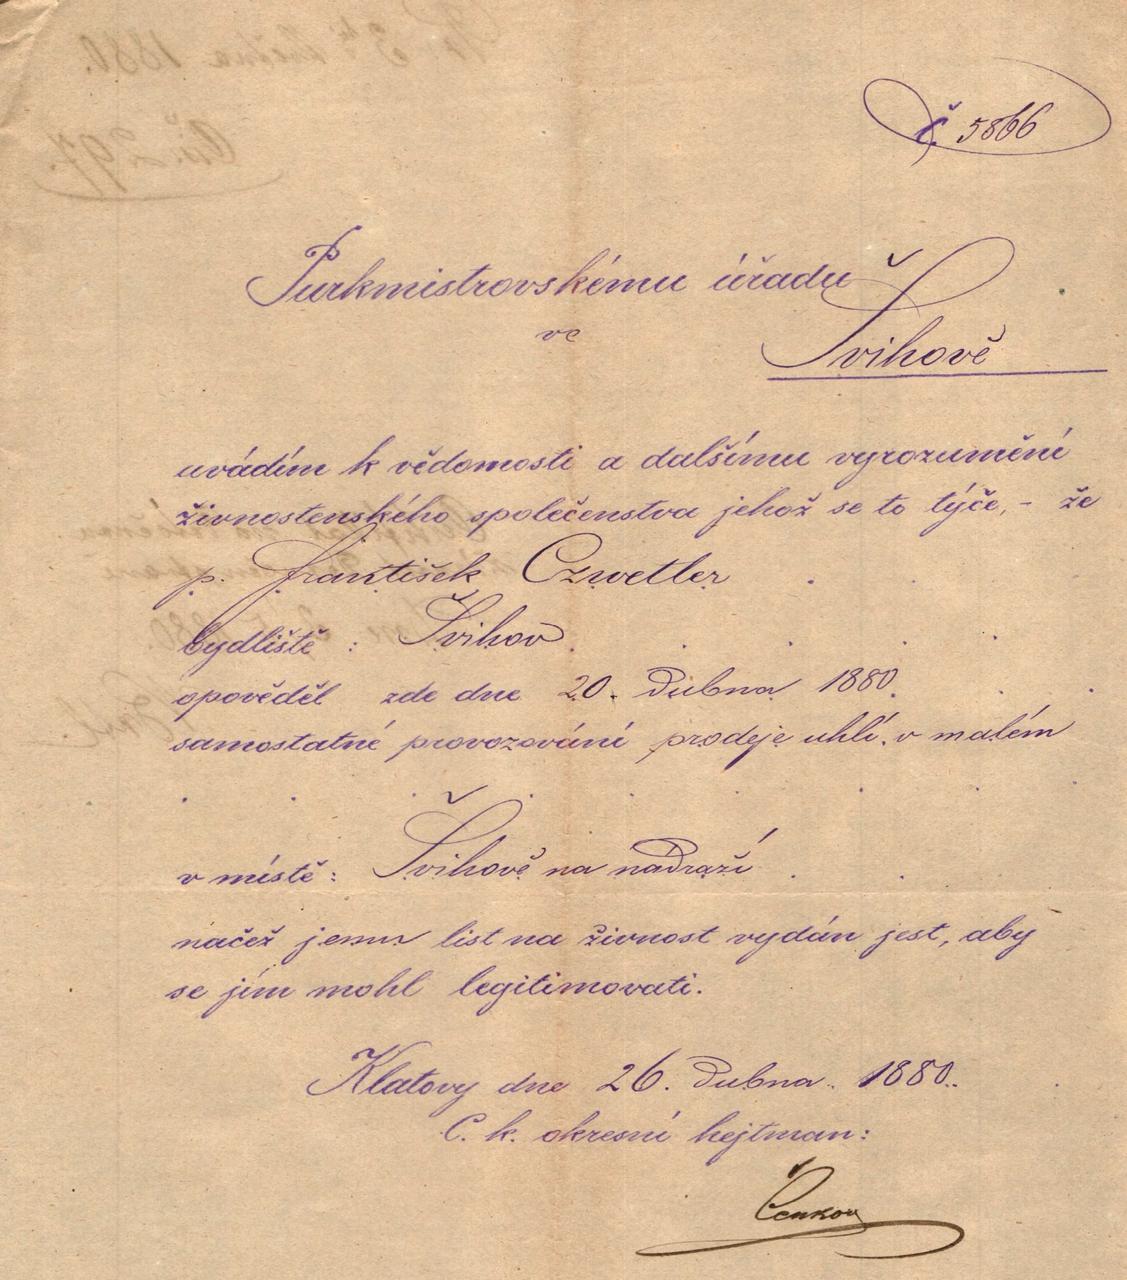 č 5866
Purkmistrovskému úřadu
ve
Švihově
uvádím k vědomosti a dalšímu vyrozumění
živnostenského společenstva jehož se to týče, – že
p. František Czwetler
bydliště : Švihov
opověděl zde dne 20. Dubna 1880.
samostatné provozování prodeje uhlí v malém
v místě: Švihově na nádraží
načež jemu list na živnost vydán jest, aby
se jím mohl legitimovati.
Klatovy dne 26. Dubna 1880.
C. k. okresní hejtman: